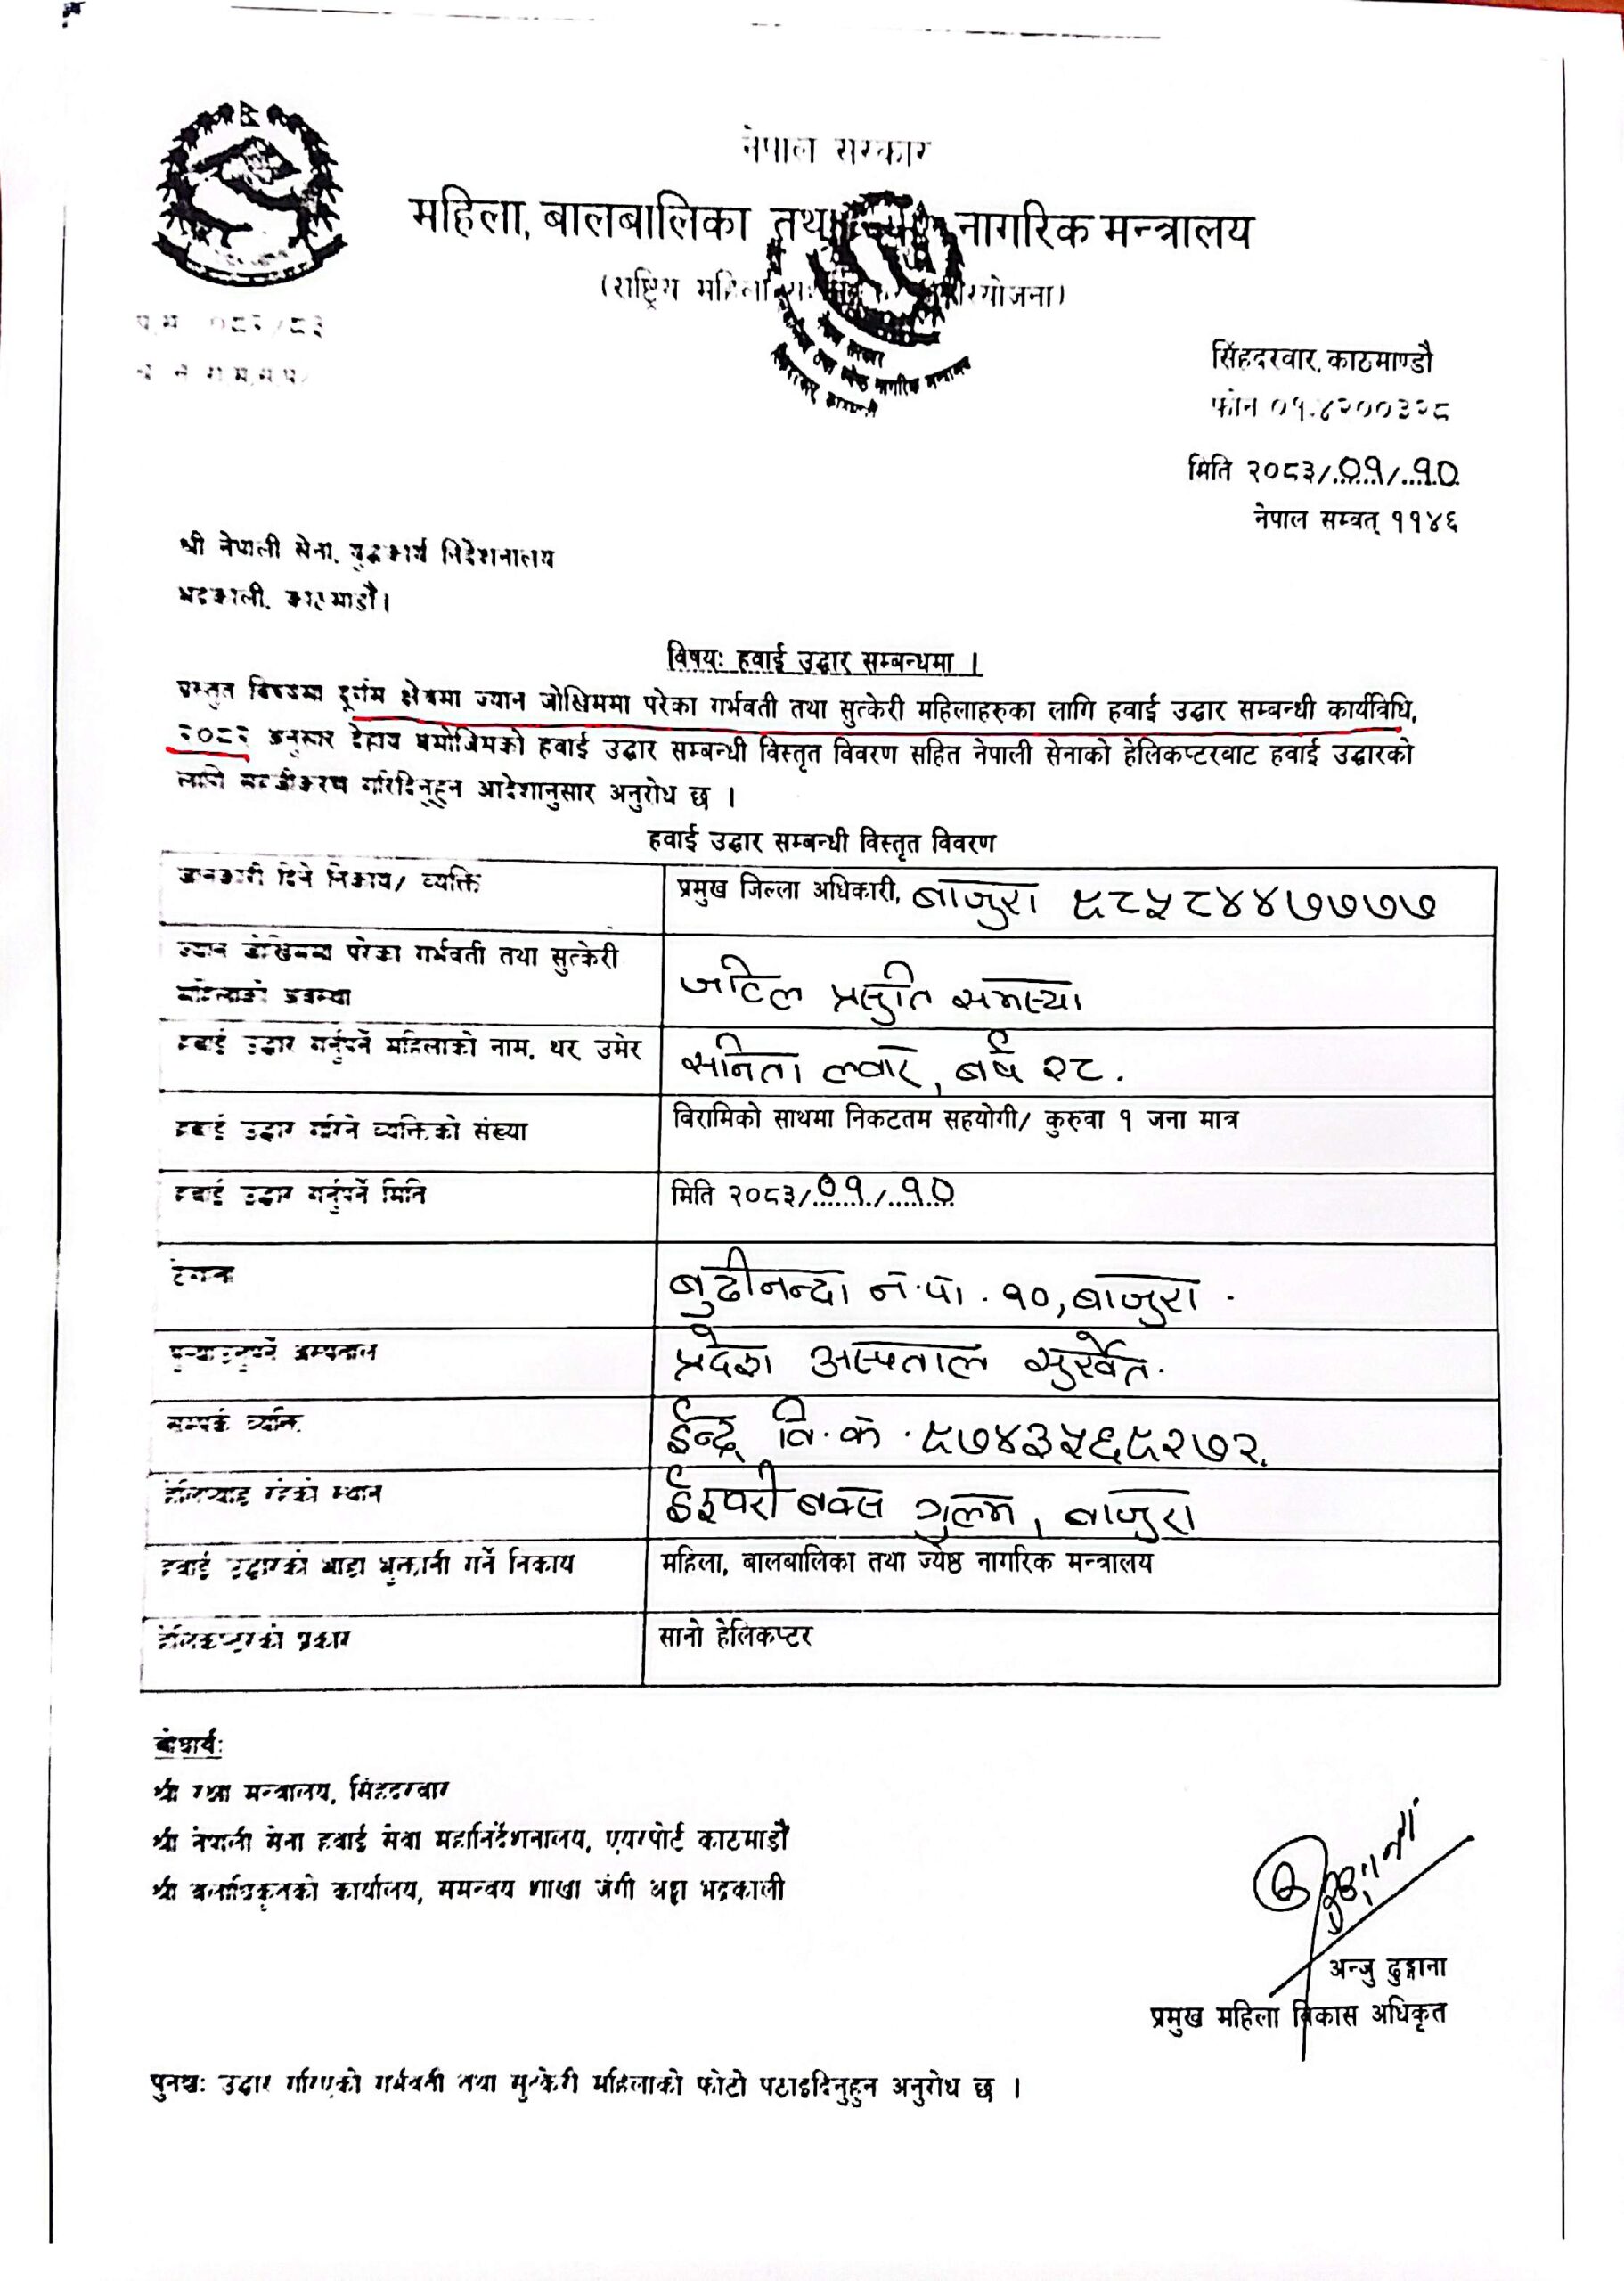 नेपाल सरकार
महिला, बालबालिका तथा नागरिक मन्त्रालय
(राष्ट्रिय महिला
०८२/८३
सिंहदरवार, काठमाण्डौ
फोन ०१-४२००३२८
मिति २०८३/०१/१०
नेपाल सम्वत् ११४६
श्री नेपाली सेना, युद्धकार्य निर्देशनालय
भद्रकाली, काठमाडौं।
विषयः हवाई उद्धार सम्बन्धमा ।
प्रस्तुत विषयमा दूर्गम क्षेत्रमा ज्यान जोखिममा परेका गर्भवती तथा सुत्केरी महिलाहरुका लागि हवाई उद्धार सम्बन्धी कार्यविधि,
२०८२ अनुसार देहाय बमोजिमको हवाई उद्धार सम्बन्धी विस्तृत विवरण सहित नेपाली सेनाको हेलिकप्टरबाट हवाई उद्धारको
लागि सहजीकरण गरिदिनुहुन आदेशानुसार अनुरोध छ ।
हवाई उद्धार सम्बन्धी विस्तृत विवरण
जानकारी दिने निकाय/ व्यक्ति
प्रमुख जिल्ला अधिकारी, बाजुरा ९८५८४४७७७७
ज्यान जोखिममा परेका गर्भवती तथा सुत्केरी
महिलाको अवस्था
जटिल प्रसुति समस्या
हवाई उद्धार गर्नुपर्ने महिलाको नाम, थर, उमेर
सनिता ल्वार, बर्ष २८.
हवाई उद्धार गरिने व्यक्तिको संख्या
विरामिको साथमा निकटतम सहयोगी/ कुरुवा १ जना मात्र
हवाई उद्धार गर्नुपर्ने मिति
मिति २०८३/०१/१०
ठेगाना
बुढीनन्दा न.पा. १०, बाजुरा .
पुर्‍याउनुपर्ने अस्पताल
प्रदेश अस्पताल सुर्खेत.
सम्पर्क व्यक्ति
ईन्द्र वि.क. ९७४३५६९२७२.
हेलिप्याड रहेको स्थान
ईश्वरी बक्स गुल्म, बाजुरा
हवाई उद्धारको भाडा भुक्तानी गर्ने निकाय
महिला, बालबालिका तथा ज्येष्ठ नागरिक मन्त्रालय
हेलिकप्टरको प्रकार
सानो हेलिकप्टर
बोधार्थः
श्री रक्षा मन्त्रालय, सिंहदरवार
श्री नेपाली सेना हवाई सेवा महानिर्देशनालय, एयरपोर्ट काठमाडौं
श्री बलाधिकृतको कार्यालय, समन्वय शाखा जंगी अड्डा भद्रकाली
अन्जु ढुङ्गाना
प्रमुख महिला विकास अधिकृत
पुनश्चः उद्धार गरिएको गर्भवती तथा सुत्केरी महिलाको फोटो पठाइदिनुहुन अनुरोध छ ।